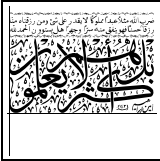 ضرب الله مثلا عبدا مملوكا لا يقدر على شئ ومن رزقناه منا
رزقا حسنا فهو ينفق منه سرا وجهرا هل يستوون الحمد لله
بل أكثرهم لا يعلمون